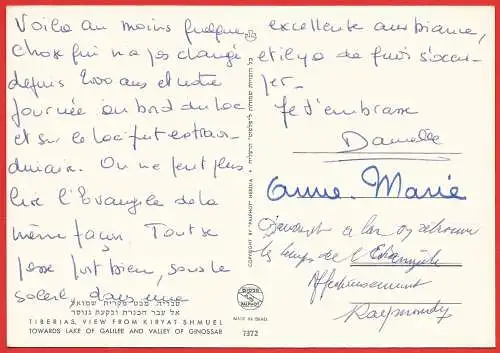 Voilà au moins quelque
chose qui n'a pas changé
depuis 2000 ans et notre
journée au bord du Lac
et sur le Lac fut extraor-
dinaire. On ne peut plus
lire l'Evangile de la
même façon. Tout se
passe fort bien, sous le
soleil, dans une
excellente ambiance,
et il y a de quoi s'occu-
per.
Je t'embrasse
Danielle
Anne-Marie
le temps de l'Evangile
Affectueusement
Raymonde
טבריה, מבט מקרית שמואל
אל עבר הכנרת ובקעת גנוסר
TIBERIAS, VIEW FROM KIRYAT SHMUEL
TOWARDS LAKE OF GALILEE AND VALLEY OF GINOSSAR
COPYRIGHT BY "PALPHOT" HERZLIA
PALPHOT
MADE IN ISRAEL
7372